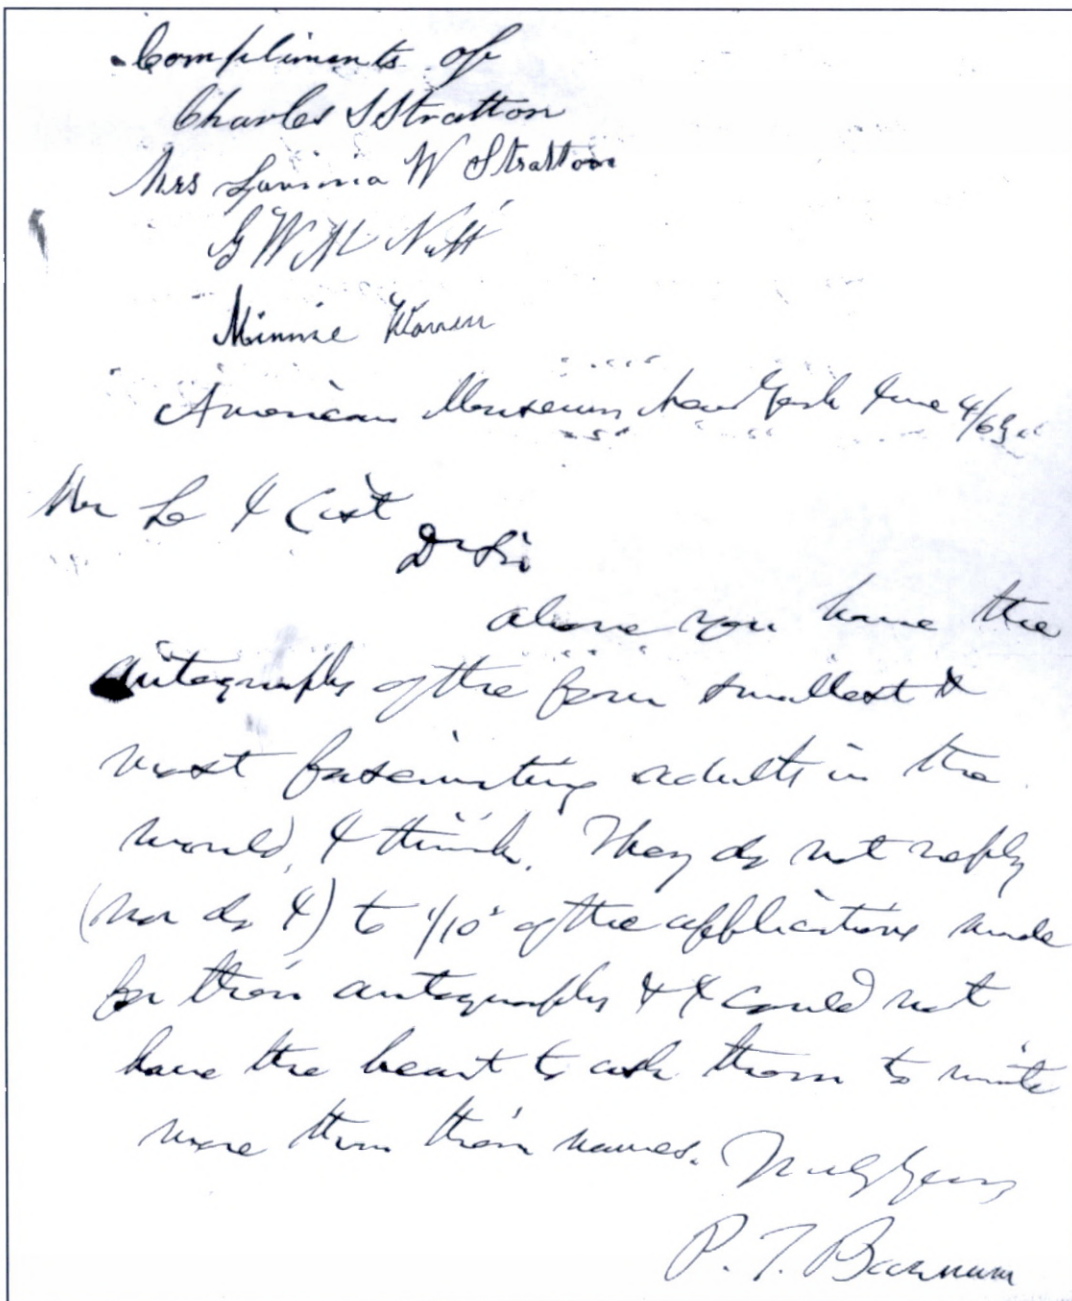 Compliments of
Charles S Stratton
Mrs Lavinia W Stratton
G W M Nutt
Minnie Warren
American Museum New York June 4/63
Mr L J Cist
Dr Sir
above you have the
autographs of the four smallest &
most fascinating adults in the
world, I think. They do not reply
(nor do I) to 1/10 of the applications made
for their autographs & I could not
have the heart to ask them to write
more than their names. Truly Yours
P. T. Barnum